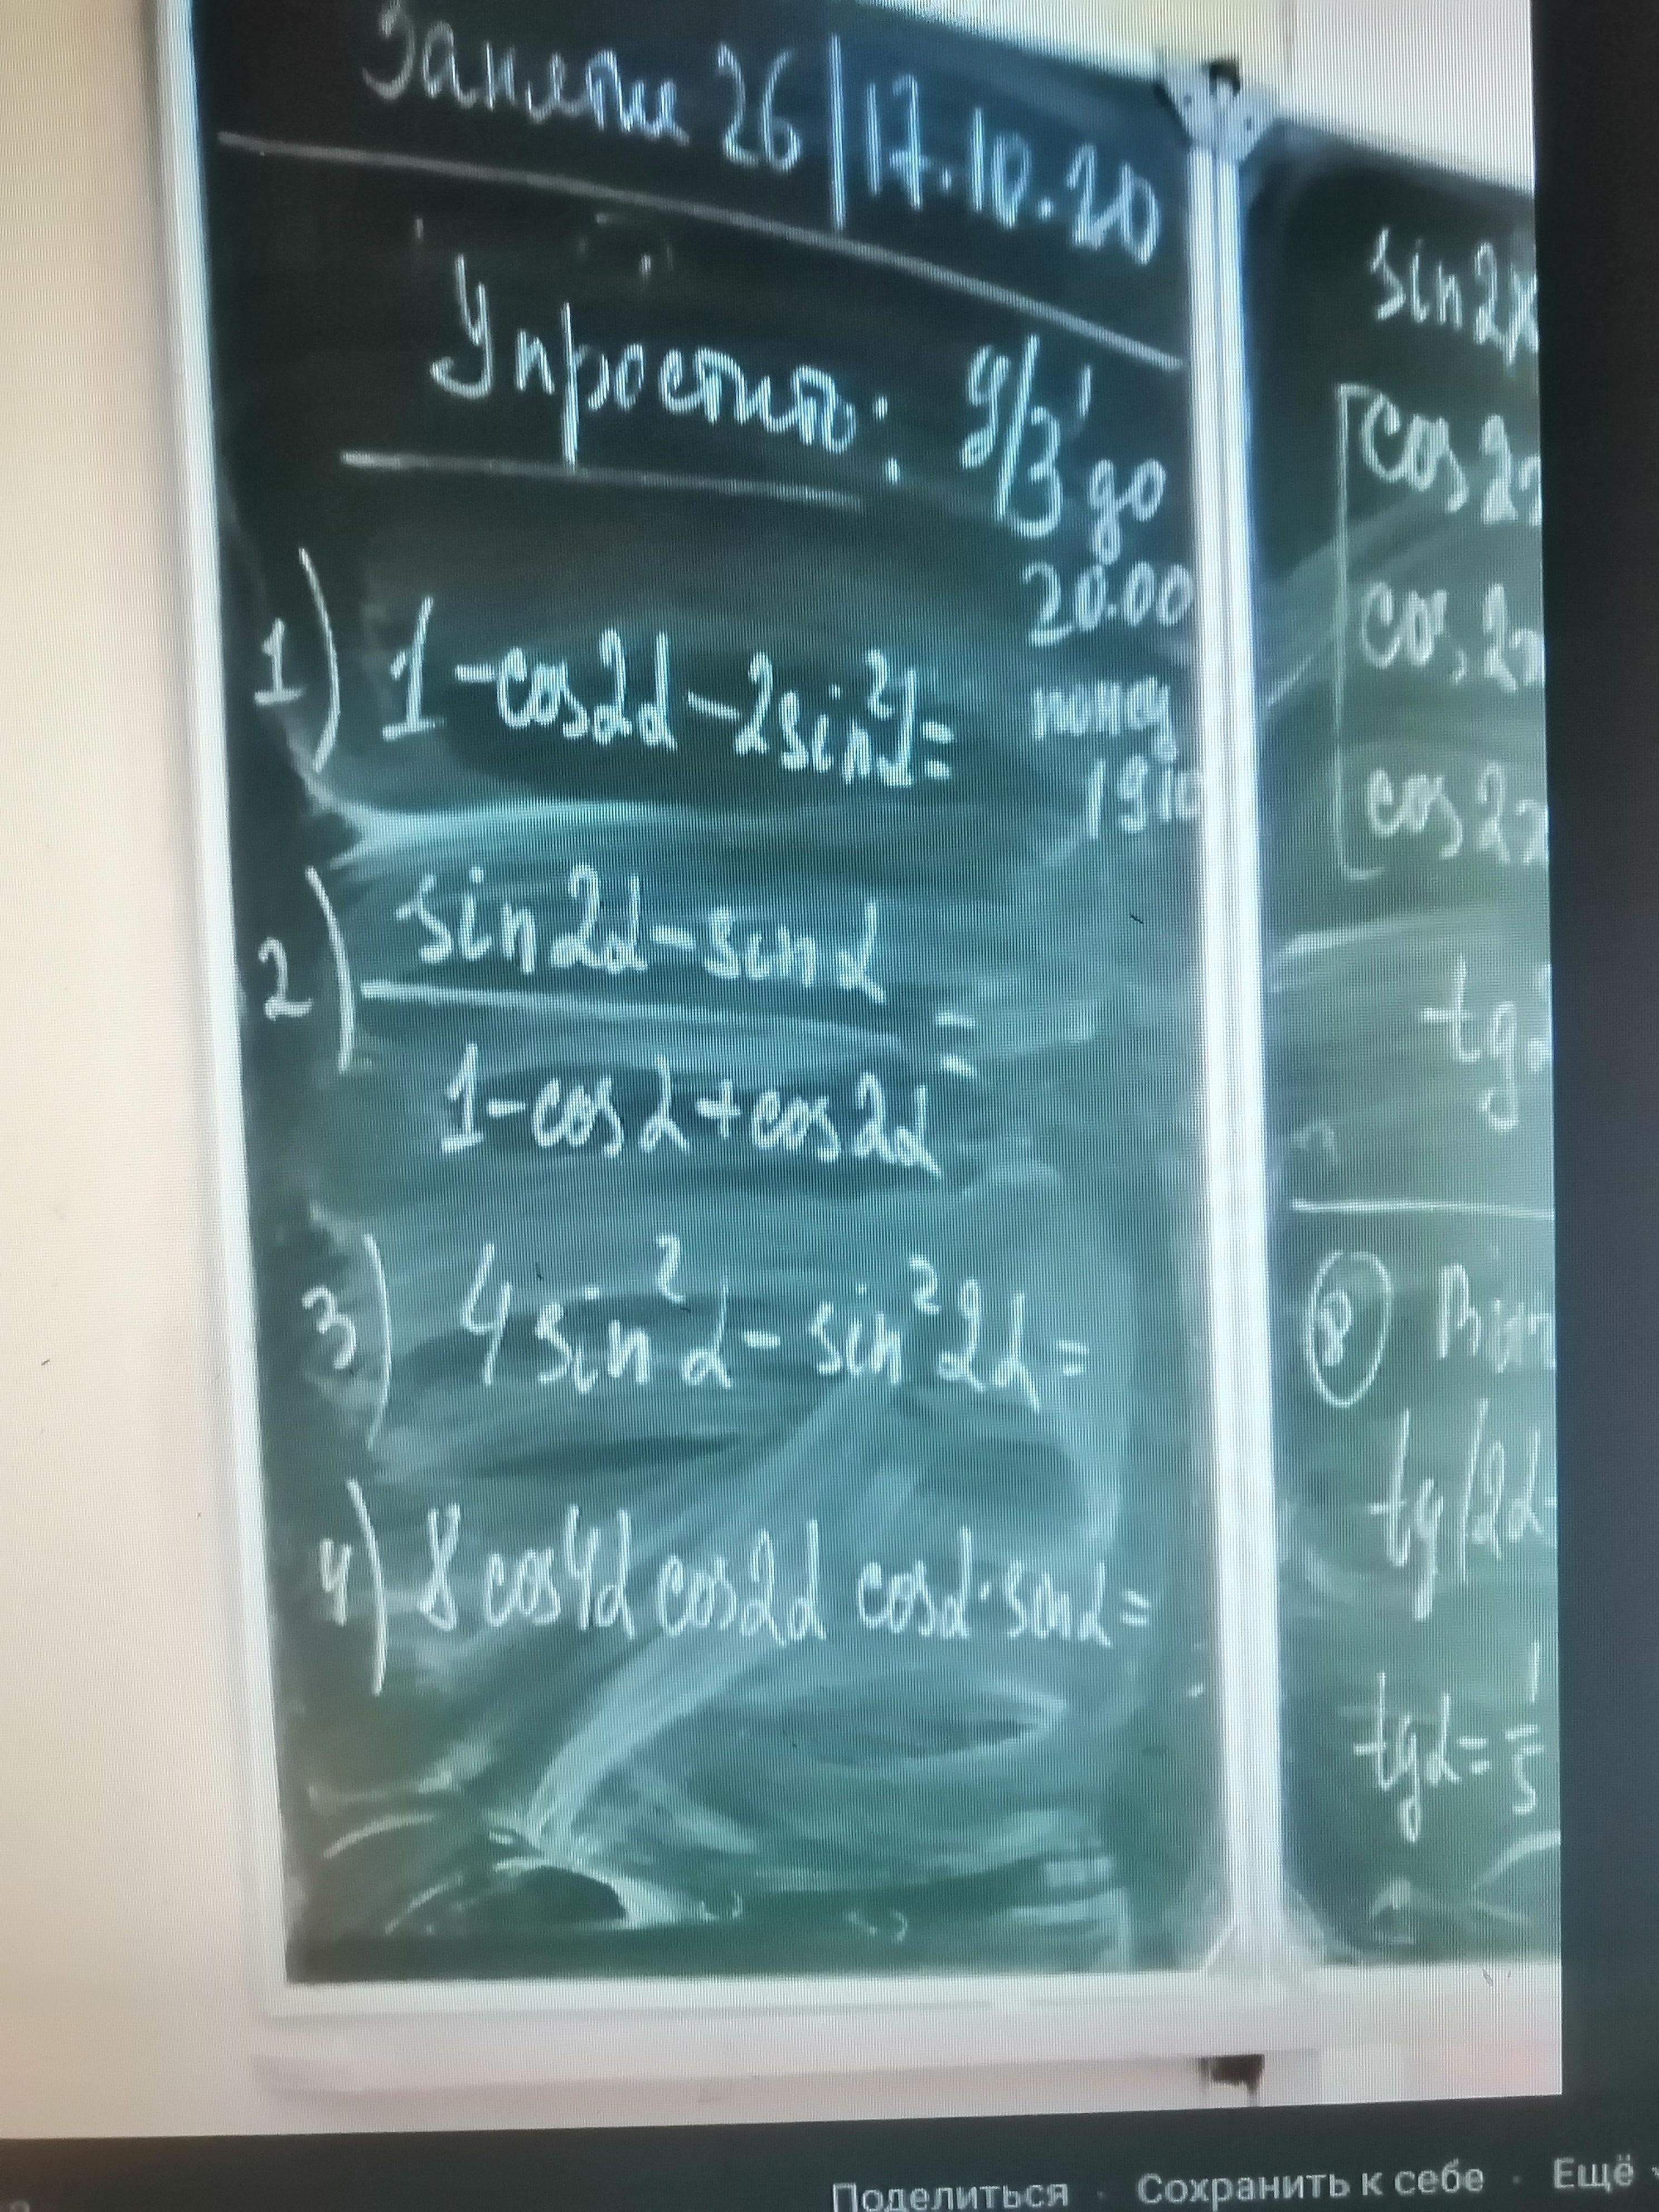 Занятие 26 | 17.10.20
Упростить: д/з до
20.00
понед
19.10
1) 1 - cos2α - 2sin²α =
2) sin2α - sinα
=
1 - cosα + cos2α
3) 4sin²α - sin²2α =
4) 8 cos4α cos2α cosα · sinα =
sin2x
cos2x
cos2x
cos2x
tg2
8
tg(2α
tgα = 1
5
Поделиться · Сохранить к себе · Ещё